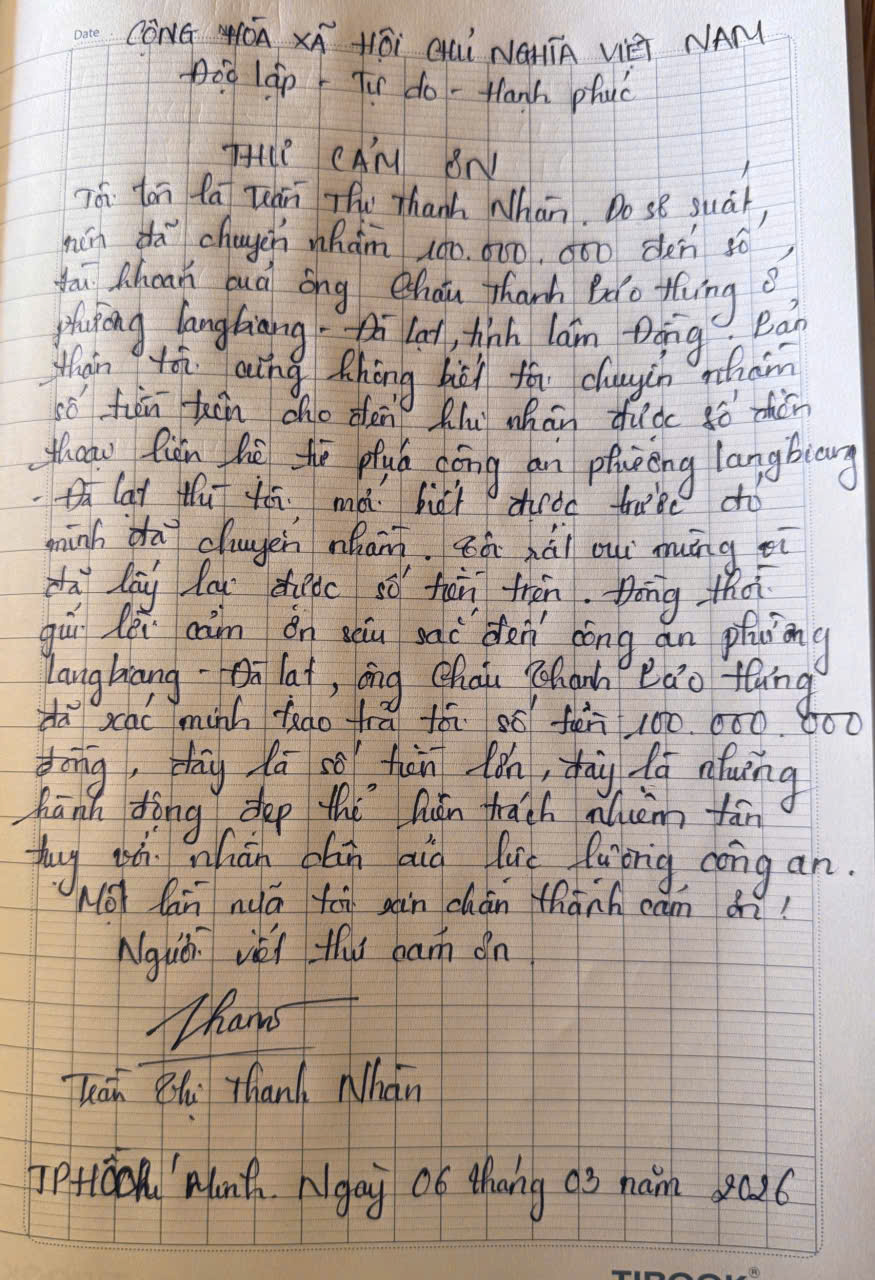 Date
CỘNG HÒA XÃ HỘI CHỦ NGHĨA VIỆT NAM
Độc lập - Tự do - Hạnh phúc
THƯ CẢM ƠN
Tôi tên là Trần Thị Thanh Nhàn. Do sơ suất,
nên đã chuyển nhầm 100.000.000 đến số
tài khoản của ông Châu Thanh Bảo Hưng ở
phường langbiang - Đà lạt, tỉnh lâm Đồng. Bản
thân tôi cũng không biết tôi chuyển nhầm
số tiền trên cho đến khi nhận được số điện
thoại liên hệ từ phía công an phường langbiang
- Đà lạt thì tôi mới biết được trước đó
mình đã chuyển nhầm. Tôi rất vui mừng vì
đã lấy lại được số tiền trên. Đồng thời
gửi lời cảm ơn sâu sắc đến công an phường
langbiang - Đà lạt, ông Châu Thanh Bảo Hưng
đã xác minh trao trả tôi số tiền 100.000.000
đồng, đây là số tiền lớn, đây là những
hành động đẹp thể hiện trách nhiệm tận
tụy với nhân dân của lực lượng công an.
Một lần nữa tôi xin chân thành cảm ơn!
Người viết thư cảm ơn
Trần Thị Thanh Nhàn
TP Hồ Chí Minh. Ngày 06 tháng 03 năm 2026